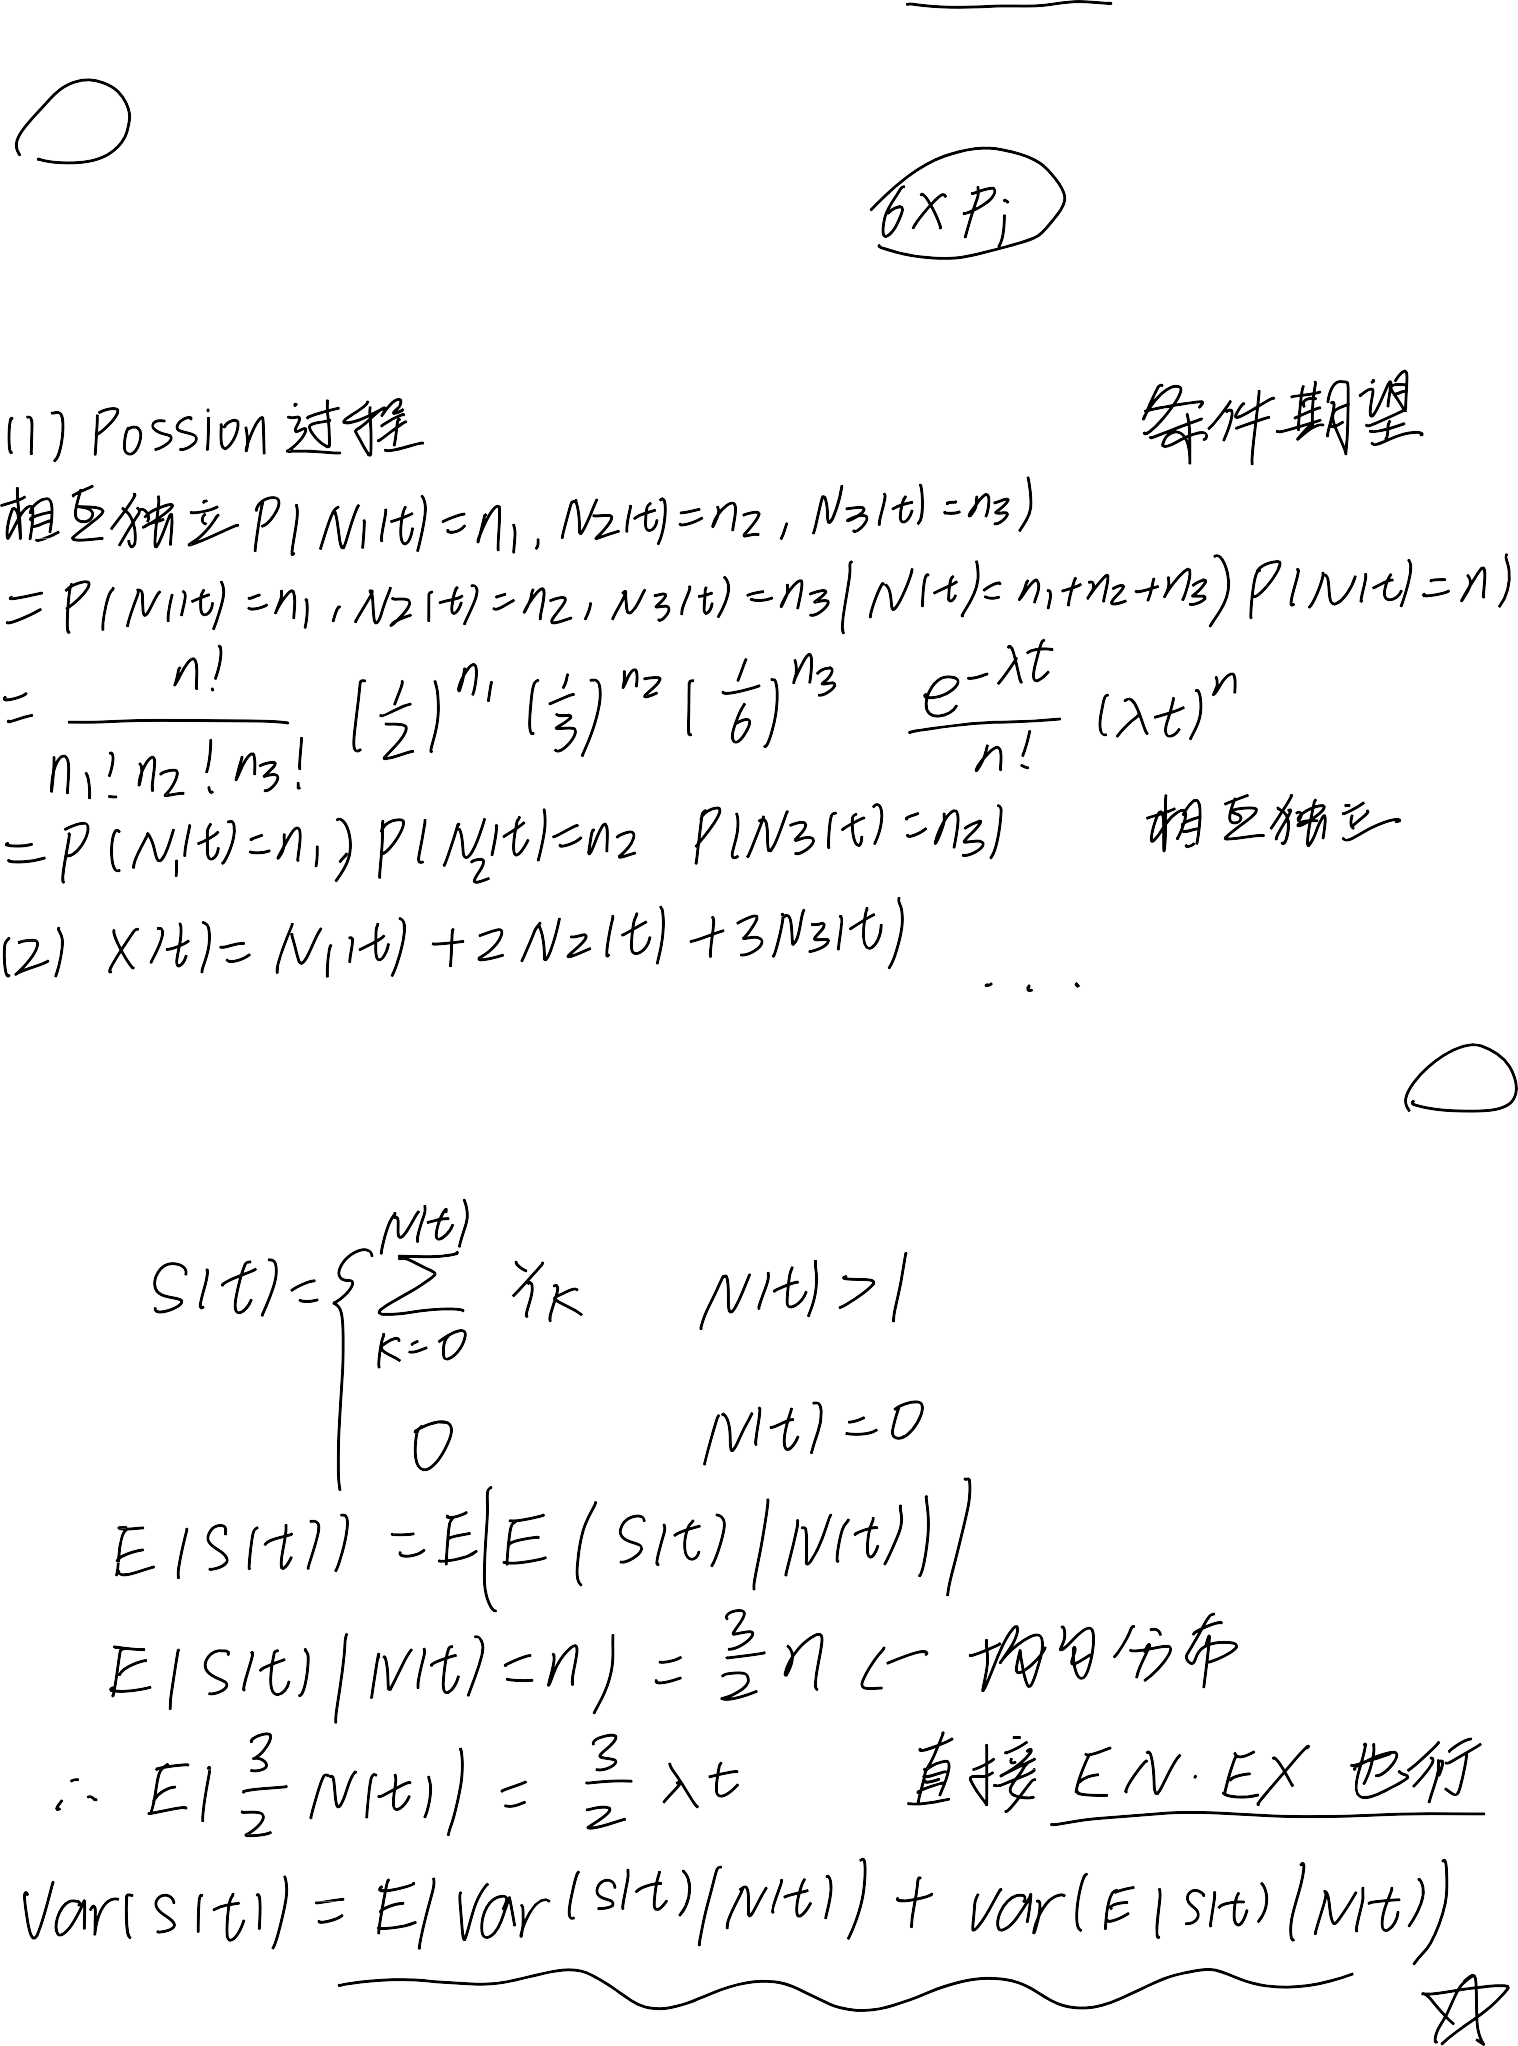 6×Pj
(1) Possion 过程 条件期望
相互独立 P(N1(t)=n1, N2(t)=n2, N3(t)=n3)
=P(N1(t)=n1, N2(t)=n2, N3(t)=n3|N(t)=n1+n2+n3) P(N(t)=n)
= n!/(n1! n2! n3!) (1/2)^n1 (1/3)^n2 (1/6)^n3 e^(-λt)/n! (λt)^n
=P(N1(t)=n1) P(N2(t)=n2 P(N3(t)=n3) 相互独立
(2) X(t)=N1(t)+2N2(t)+3N3(t) ...
S(t)={ ∑_{k=0}^{N(t)} Yk N(t)>1
0 N(t)=0
E(S(t))=E(E(S(t)|N(t)))
E(S(t)|N(t)=n)=3/2 n ← 均匀分布
∴ E(3/2 N(t))=3/2 λt 直接 EN·EX 也行
Var(S(t))=E(Var(S(t)|N(t))+Var(E(S(t)|N(t))